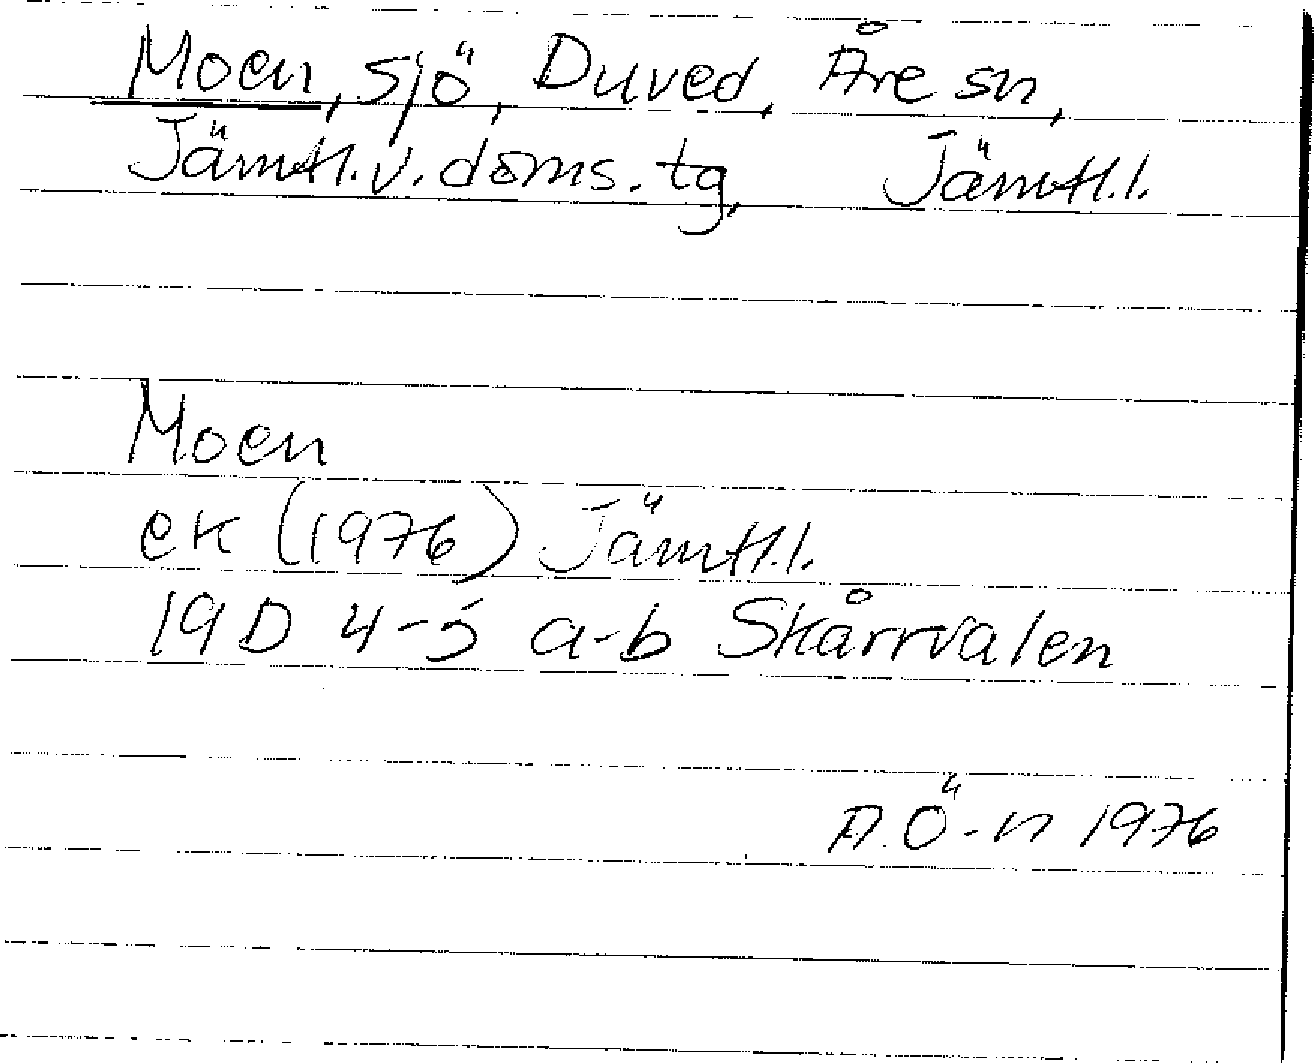 Moen, sjö, Duved, Åre sn,
Jämtl.v.doms.tg, Jämtl.l.
Moen
ek (1976) Jämtl.l.
19D 4-5 a-b Skårrvalen
A.Ö-n 1976